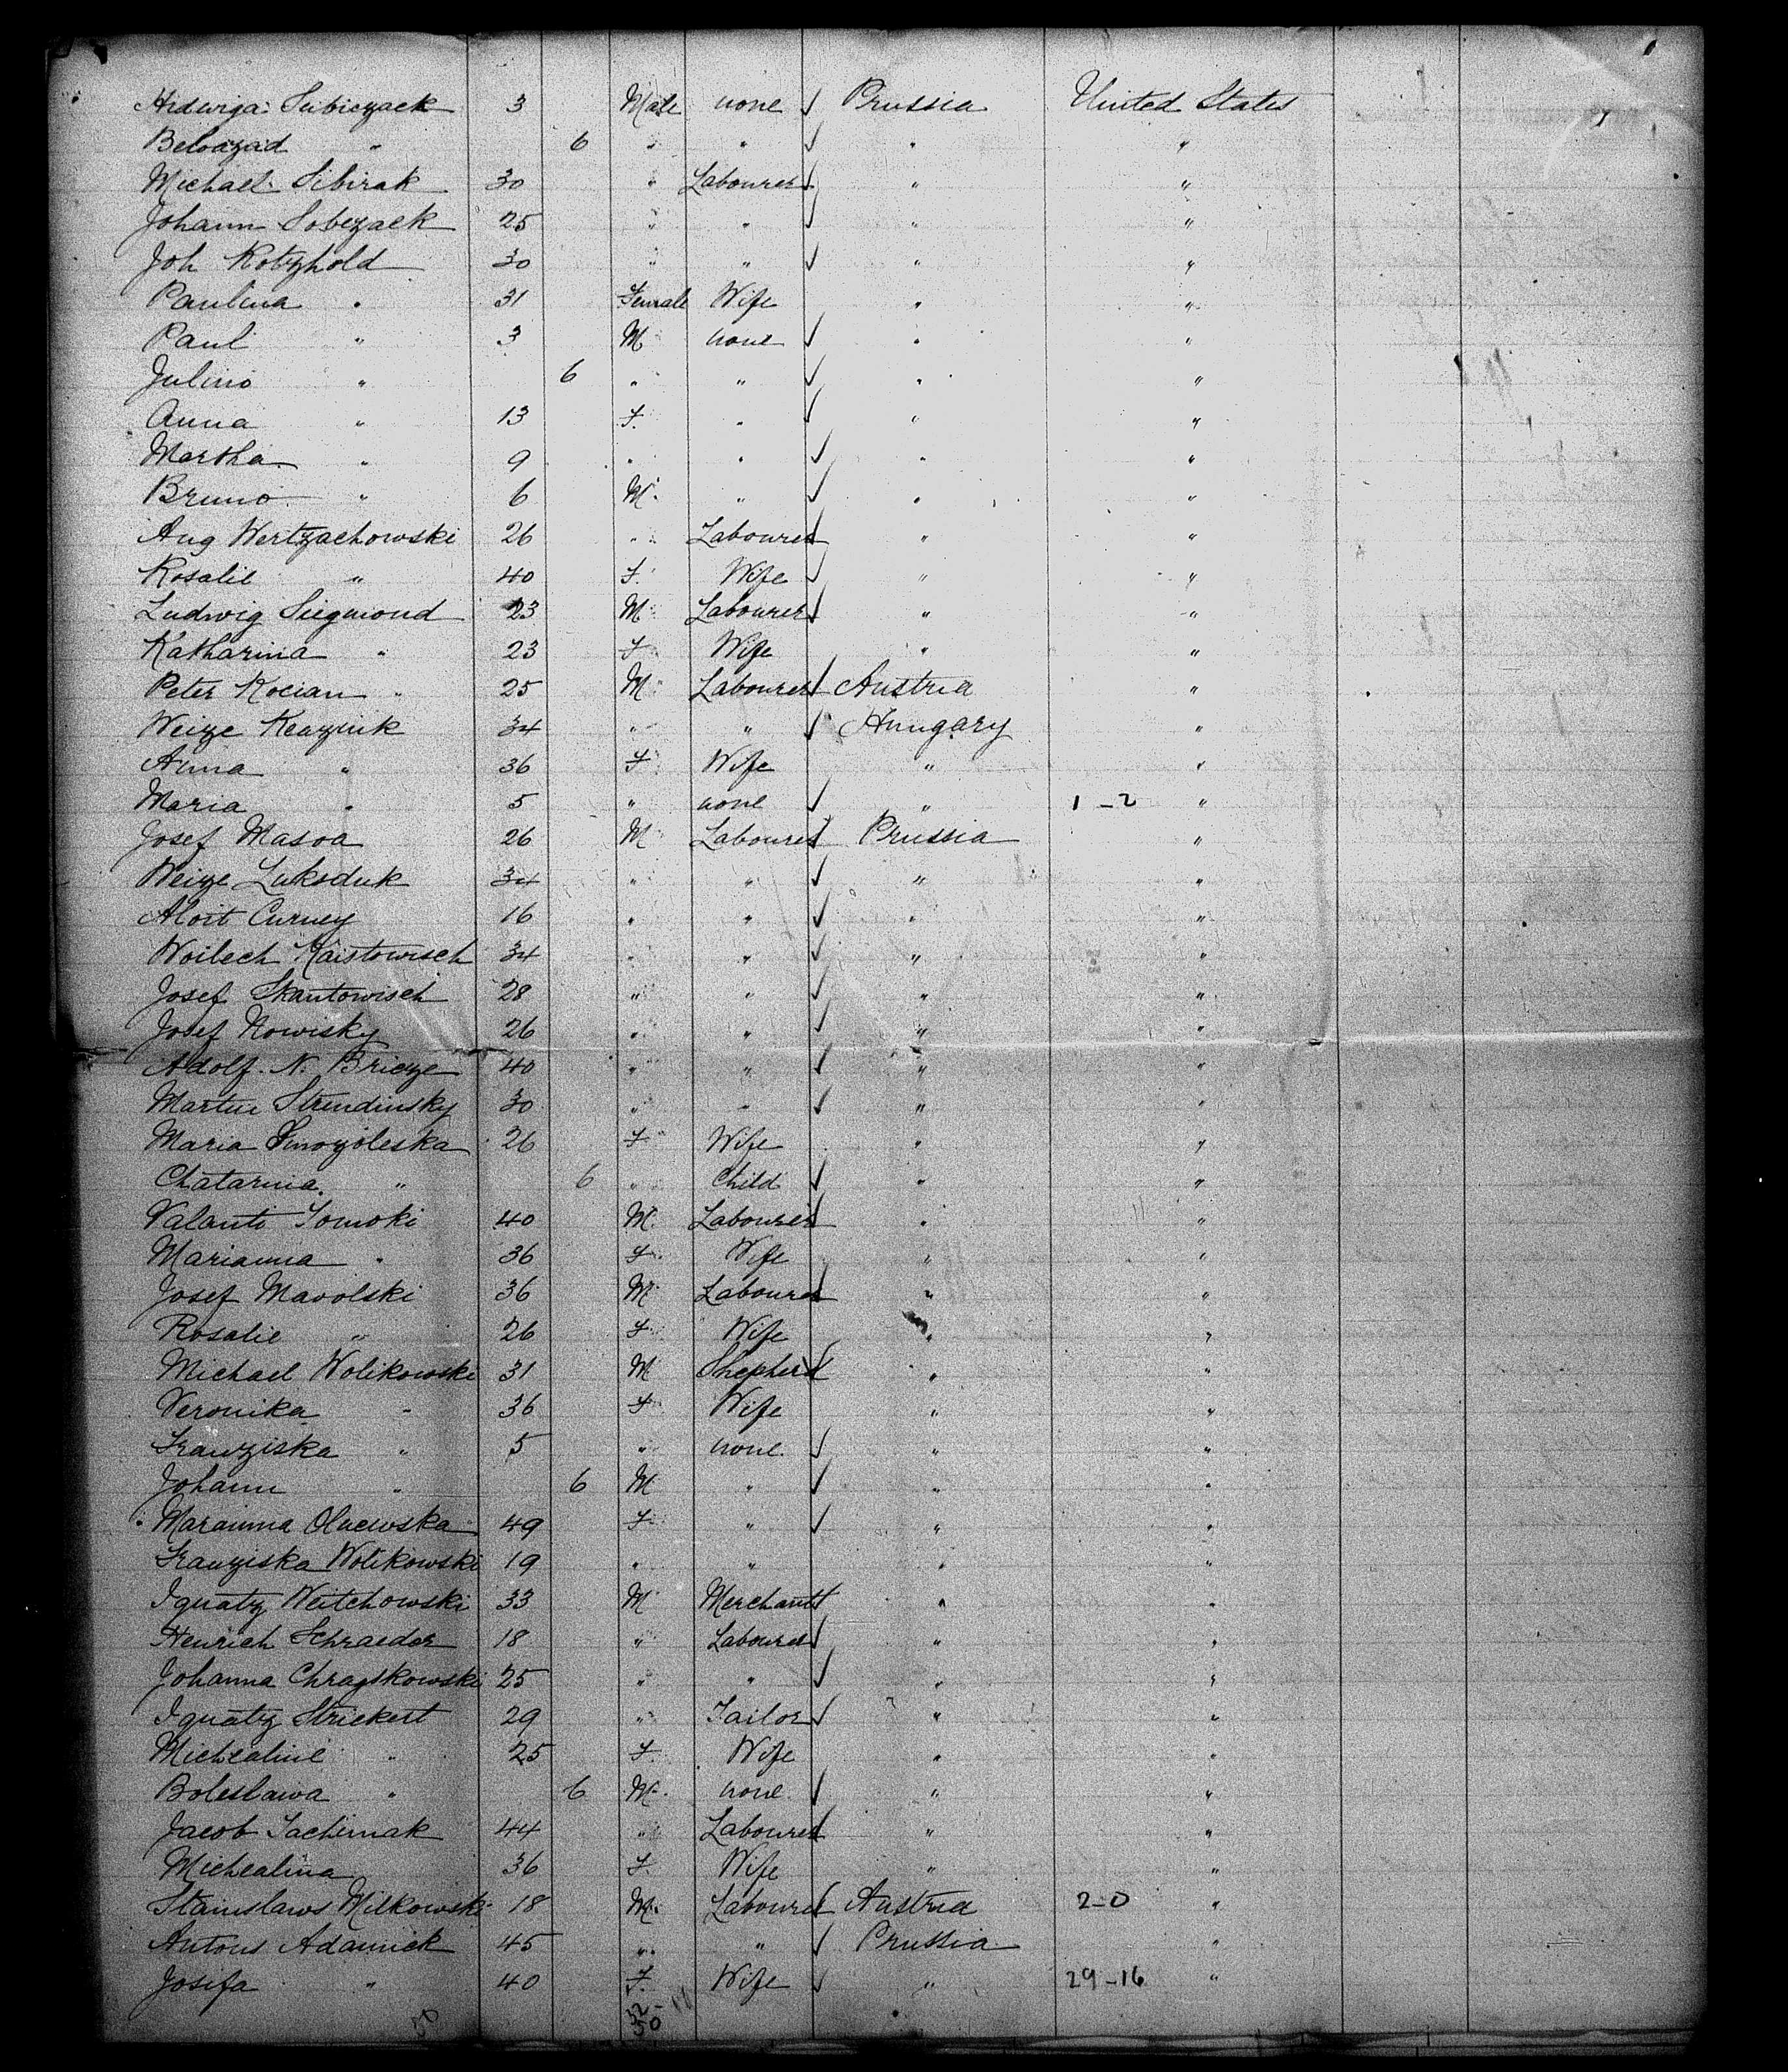 Hidwiga Subiczack 3 Male none ✓ Prussia United States
Beloazad " 6 " " ✓ " "
Michael Sibirak 30 " Labourer ✓ " "
Johann Sobczack 25 " " ✓ " "
Joh Kotzhold 30 " " ✓ " "
Paulina " 31 Female Wife " "
Paul " 3 M none ✓ " "
Julino " 6 " " ✓ " "
Anna " 13 F. " ✓ " "
Martha " 9 " " ✓ " "
Bruno " 6 M. " ✓ " "
Aug Wertzachowski 26 " Labourer ✓ " "
Rosalie " 40 F. Wife ✓ " "
Ludwig Siegmond 23 M Labourer ✓ " "
Katharina " 23 F Wife " "
Peter Kocian " 25 M Labourer ✓ Austria "
Weize Keazink 34 " " ✓ Hungary "
Anna " 36 F Wife " "
Maria " 5 " none ✓ " 1-2 "
Josef Masoa 26 M Labourer ✓ Prussia "
Weize Luksduk 34 " " ✓ " "
Aloit Curney 16 " " ✓ " "
Woilech Kaistowisch 34 " " ✓ " "
Josef Skantowisch 28 " " ✓ " "
Josef Nowisky 26 " " ✓ " "
Adolf. N. Brieze 40 " " ✓ " "
Martin Strendinsky 30 " " ✓ " "
Maria Smozoleska 26 F Wife " "
Chatarina " 6 " Child ✓ " "
Valanti Tomoki 40 M. Labourer ✓ " "
Marianna " 36 F. Wife " "
Josef Mavolski 36 M Labourer ✓ " "
Rosalie " 26 F Wife " "
Michael Wolikowski 31 M Shepherd ✓ " "
Veronika " 36 F. Wife " "
Franziska " 5 " none ✓ " "
Johann " 6 M " ✓ " "
Marianna Olnewska 49 F " ✓ " "
Franziska Wolikowski 19 " " " "
Ignatz Weitchowski 33 M Merchant ✓ " "
Henrich Schraeder 18 " Labourer ✓ " "
Johanna Chragskowski 25 " " ✓ " "
Ignatz Striekert 29 " Tailor ✓ " "
Michealine " 25 F. Wife " "
Boleslawa " 6 M. none ✓ " "
Jacob Tachimak 44 " Labourer ✓ " "
Michealina 36 F. Wife " "
Stanislaws Milkowski 18 M. Labourer ✓ Austria 2-0 "
Antons Adamick 45 " " ✓ Prussia "
Josifa " 40 F. Wife ✓ " 29-16 "
50 32- 17
50